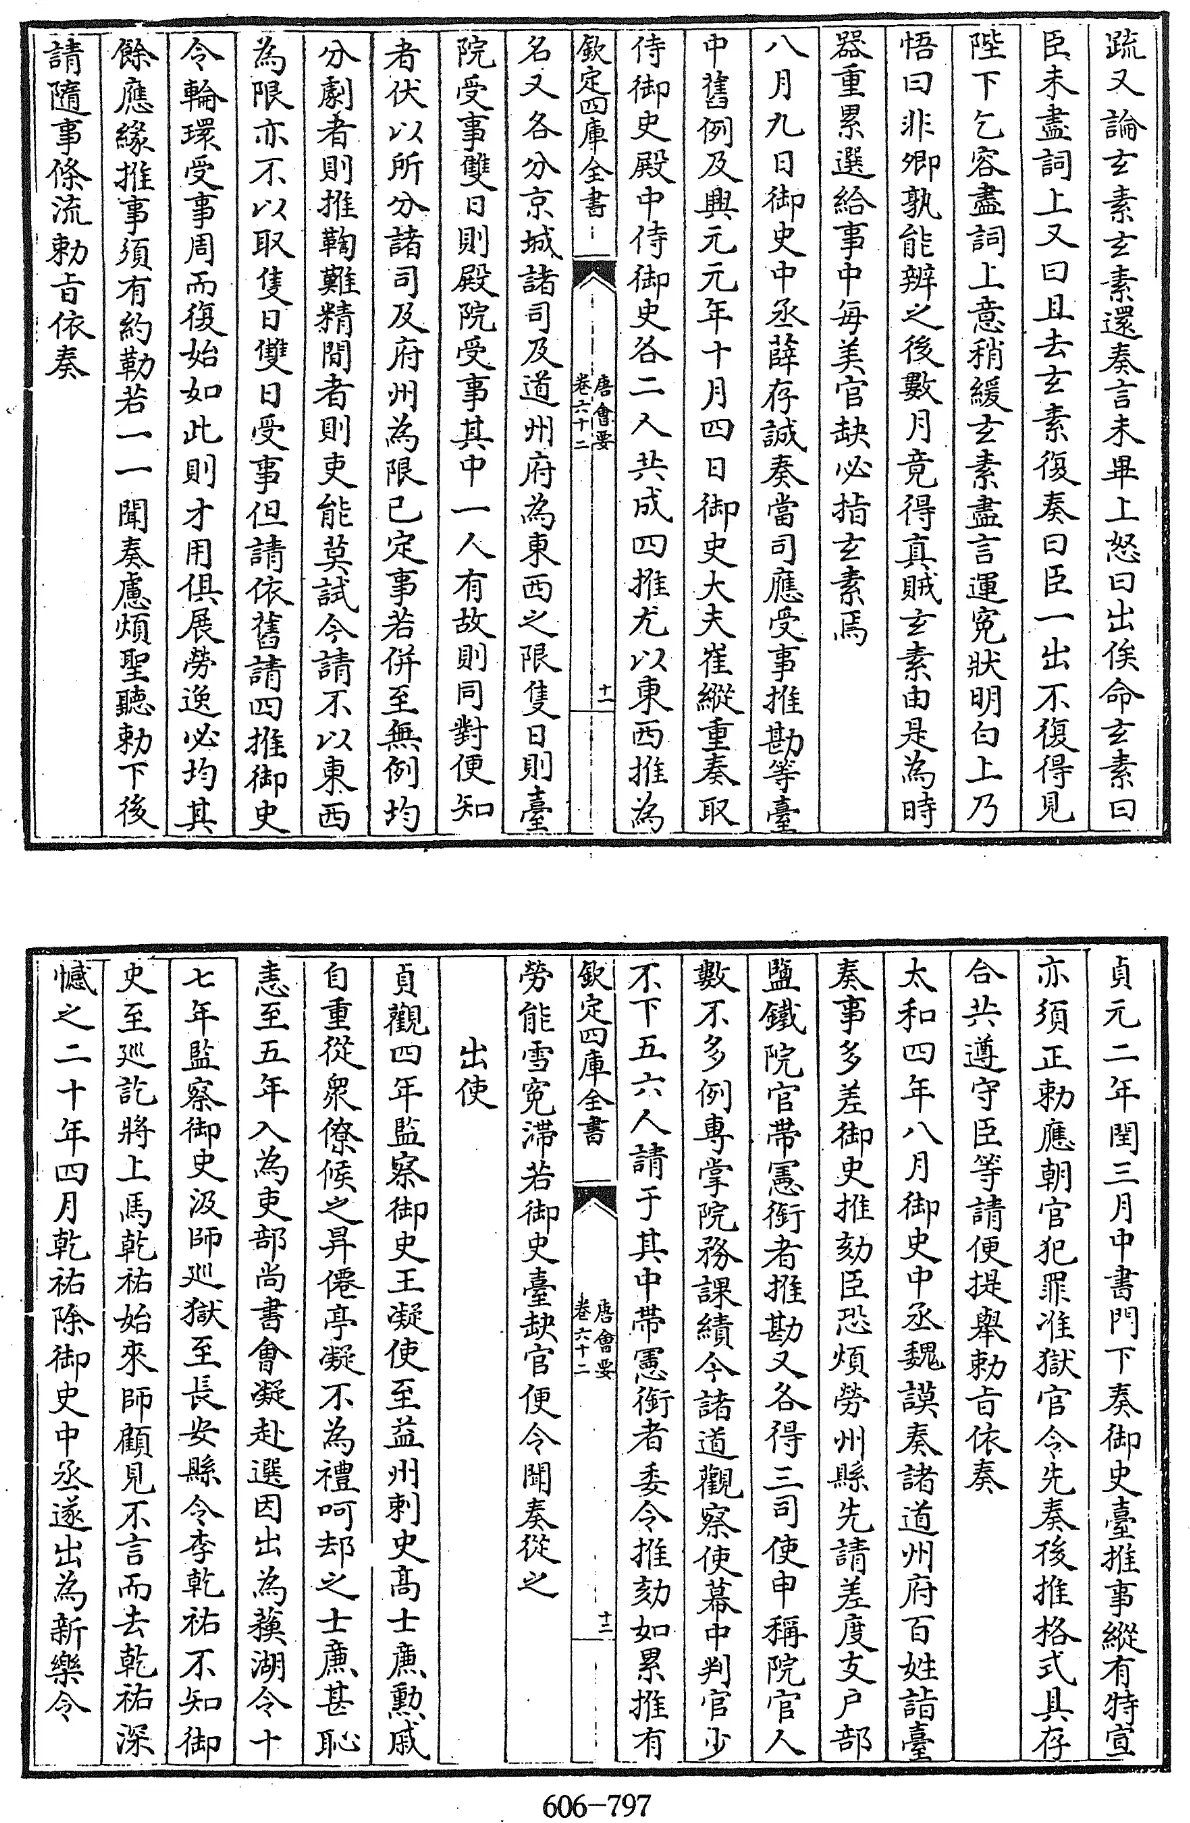 疏又論玄素玄素還奏言未畢上怒曰出俟命玄素曰
臣未盡詞上又曰且去玄素復奏曰臣一出不復得見
陛下乞容盡詞上意稍緩玄素盡言運寃狀明白上乃
悟曰非卿孰能辨之後數月竟得真賊玄素由是為時
器重累選給事中每美官缺必指玄素焉
八月九日御史中丞薛存誠奏當司應受事推勘等臺
中舊例及興元元年十月四日御史大夫崔縱重奏取
侍御史殿中侍御史各二人共成四推尤以東西推為
欽定四庫全書
唐會要
卷六十二
十一
名又各分京城諸司及道州府為東西之限隻日則臺
院受事雙日則殿院受事其中一人有故則同對便知
者伏以所分諸司及府州為限已定事若併至無例均
分劇者則推鞫難精間者則吏能莫試今請不以東西
為限亦不以取隻日雙日受事但請依舊請四推御史
令輪環受事周而復始如此則才用俱展勞逸必均其
餘應緣推事須有約勒若一一聞奏慮煩聖聽勅下後
請隨事條流勅旨依奏
貞元二年閏三月中書門下奏御史臺推事縱有特宣
亦須正勅應朝官犯罪准獄官令先奏後推格式具存
合共遵守臣等請便提舉勅旨依奏
太和四年八月御史中丞魏謨奏諸道州府百姓詣臺
奏事多差御史推劾臣恐煩勞州縣先請差度支户部
鹽鐵院官帶憲銜者推勘又各得三司使申稱院官人
數不多例專掌院務課績今諸道觀察使幕中判官少
不下五六人請于其中帶憲銜者委令推劾如累推有
欽定四庫全書
唐會要
卷六十二
十二
勞能雪寃滯若御史臺缺官便令聞奏從之
出使
貞觀四年監察御史王凝使至益州刺史高士廉勲戚
自重從衆僚候之昇僊亭凝不為禮呵却之士廉甚恥
恚至五年入為吏部尚書會凝赴選因出為蕪湖令十
七年監察御史汲師巡獄至長安縣令李乾祐不知御
史至巡訖將上馬乾祐始來師顧見不言而去乾祐深
憾之二十年四月乾祐除御史中丞遂出為新樂令
606-797